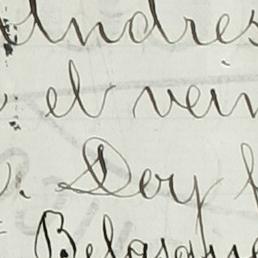 Andres
el vein
Doy f
Belasque